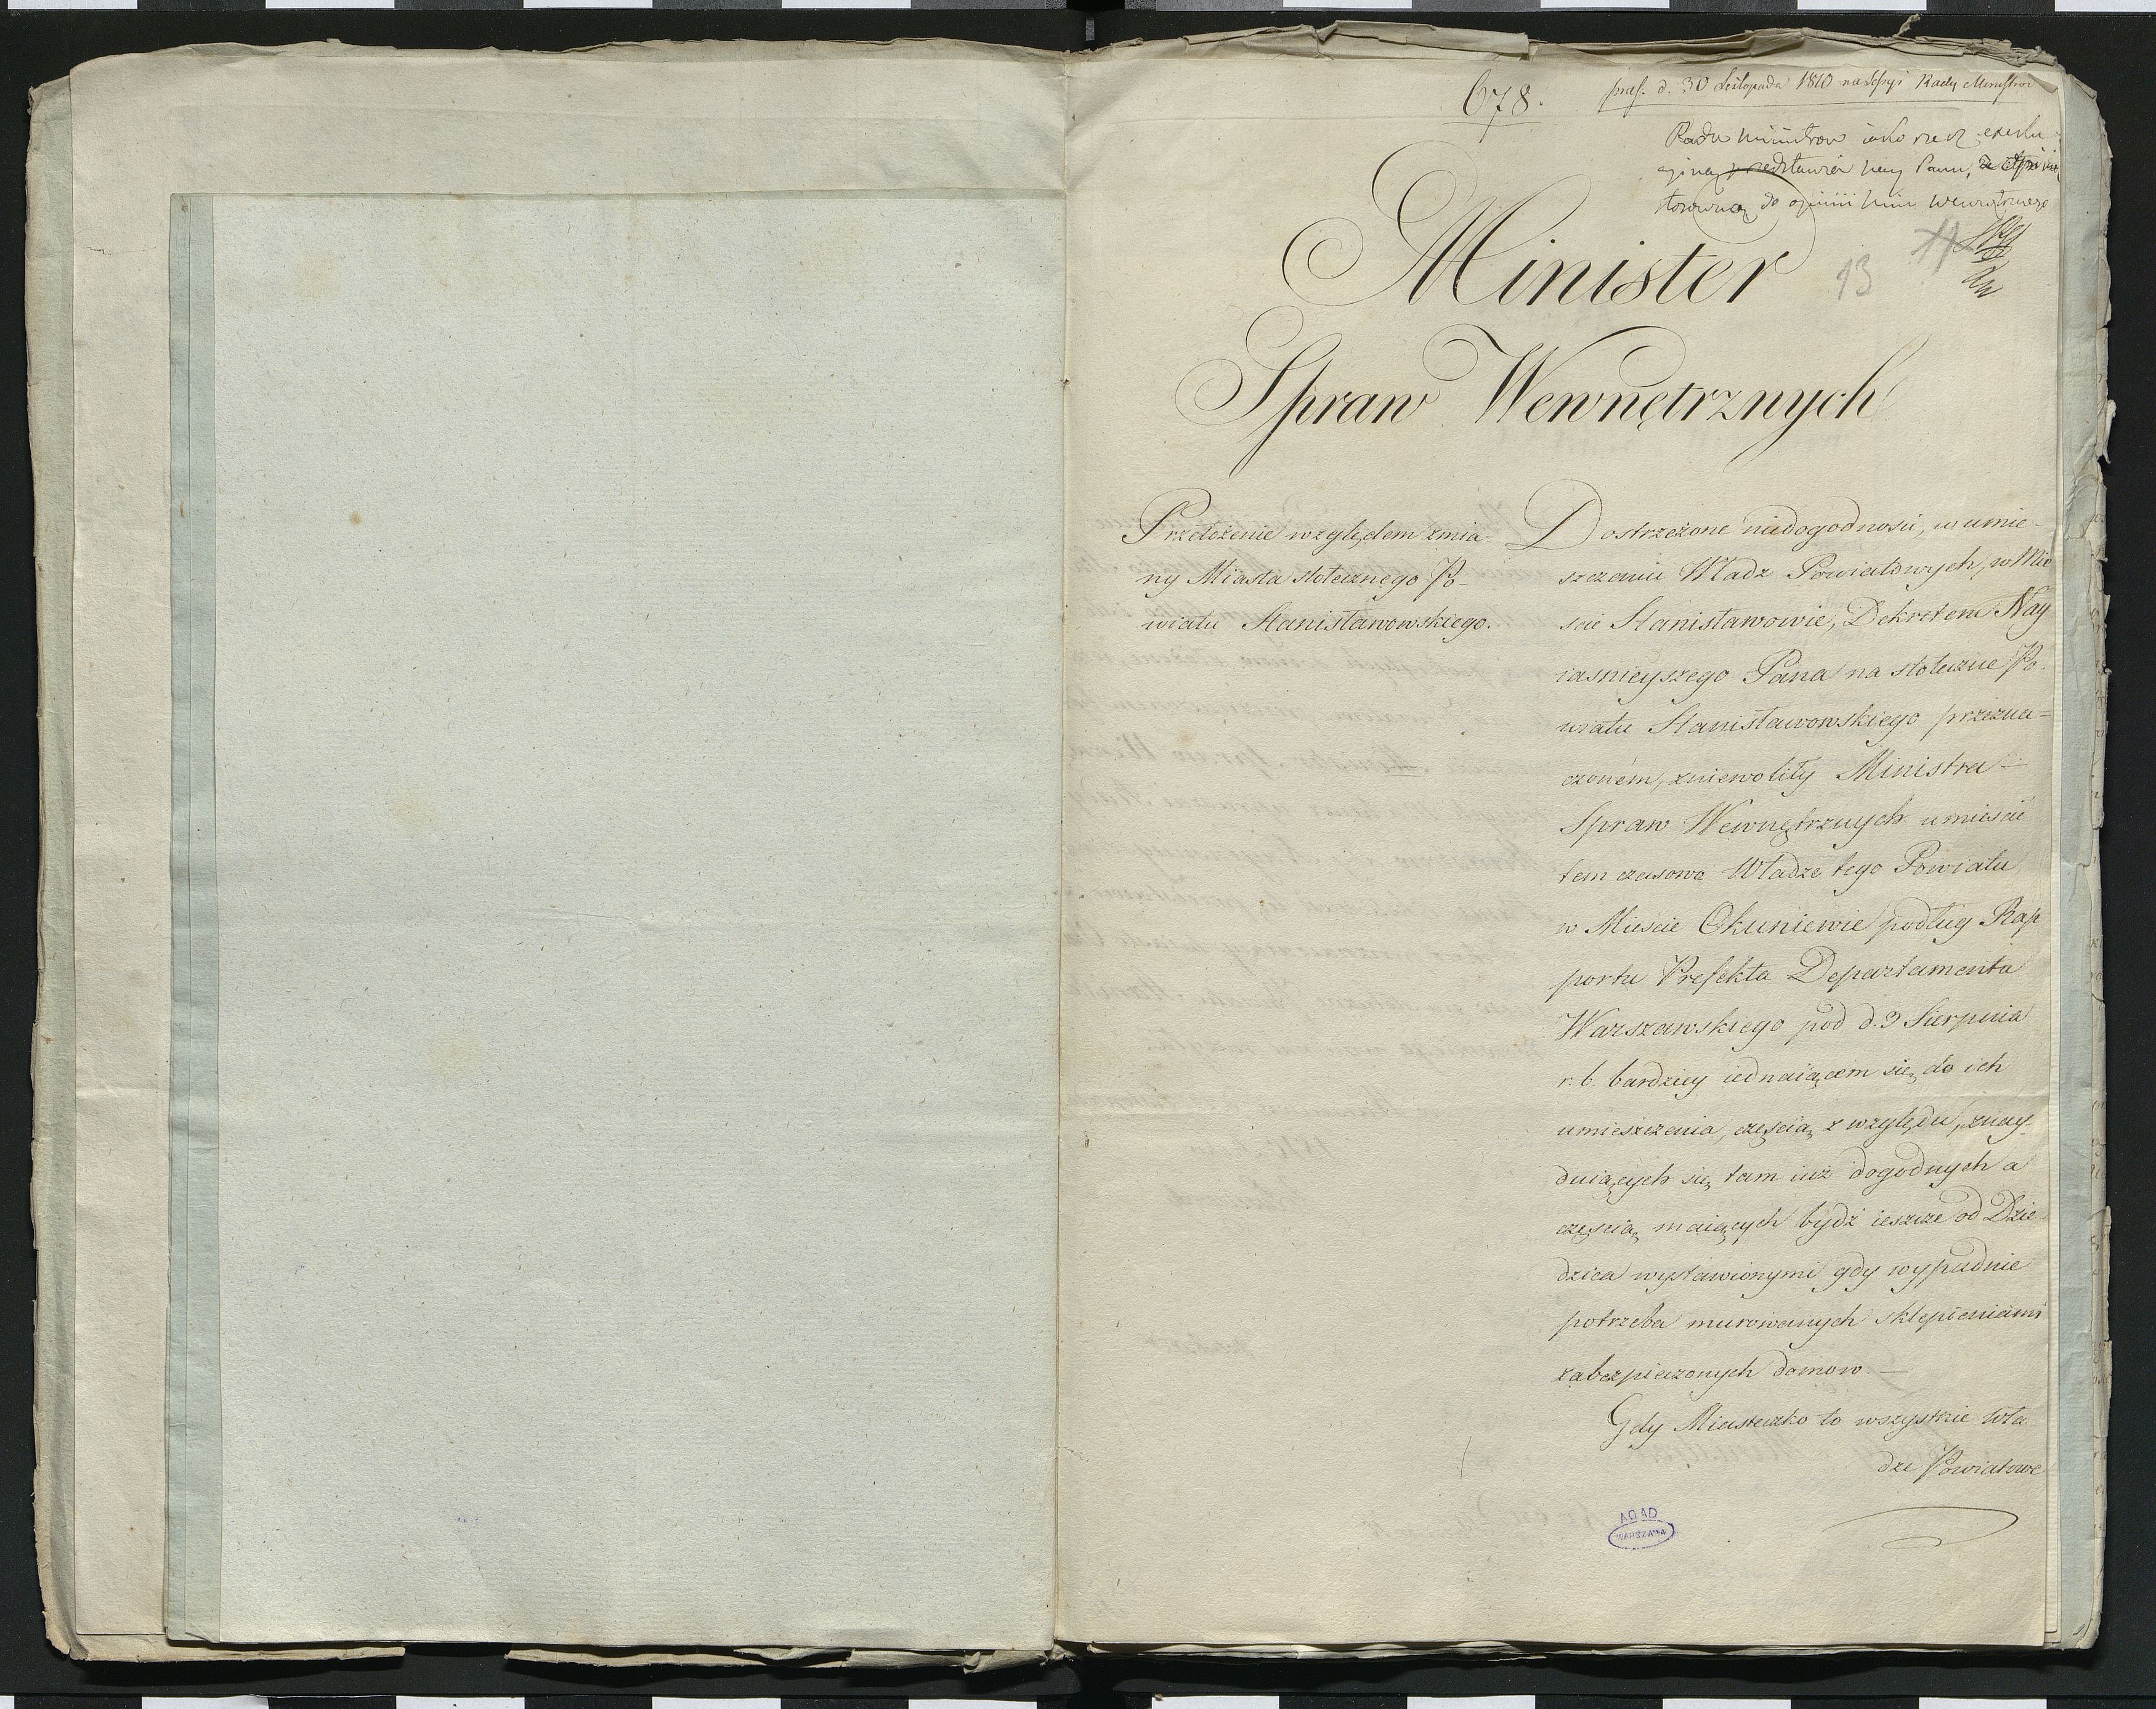 678.
præs. d. 30 Listopada 1810 na Sessyi Rady Ministrow
Rada Ministrow iako rzecz exeku
cyiną przedstawia Nay Panu,
stosowną do opinii Min Wewnętrznego
13
Minister
Spraw Wewnętrznych
Przełożenie względem zmia-
ny Miasta stołecznego Po-
wiatu Stanisławowskiego.
Dostrzeżone niedogodności, w umie-
szczeniu Władz Powiatowych, w Mie
ście Stanisławowie, Dekretem Nay
iaśnieyszego Pana na stołeczne Po-
wiatu Stanisławowskiego przezna=
czoném, zniewoliły Ministra
Spraw Wewnętrznych umieścić
tem czasowo Władze tego Powiatu
w Mieście Okuniewie podług Rap
portu Prefekta Departamentu
Warszawskiego pod d. 9 Sierpnia
r. b. bardziey iednaiącem się do ich
umieszczenia, częścią z względu, znay-
duiących się tam iuż dogodnych a
częścią maiących bydź ieszcze od Dzie
dzica wystawionymi gdy wypadnie
potrzeba murowanych sklepieniami
zabezpieczonych domow.—
Gdy Miasteczko to wszystkie wła
dze Powiatowe
AGAD
WARSZAWA